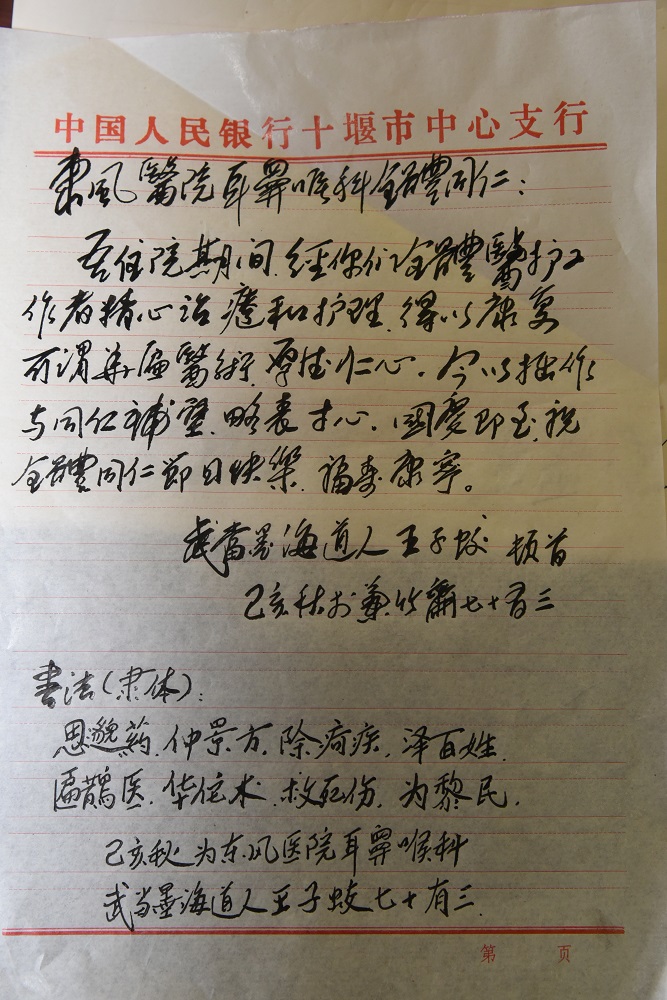 中国人民银行十堰市中心支行
東風醫院耳鼻喉科全體同仁：
吾住院期间，經你们全體醫护工
作者精心治癒和护理，得以康复
可谓华扁醫術，厚德仁心。今以拙作
与同仁補壁，略表寸心。國慶即至，祝
全體同仁節日快樂，福壽康寧。
武當墨海道人王子蛟 顿首
己亥秋于兼竹齋七十有三
书法（隶体）：
思邈药，仲景方，除疴疾，泽百姓，
扁鹊医，华佗术，救死伤，为黎民，
己亥秋为东风医院耳鼻喉科
武当墨海道人王子蛟七十有三
第 页